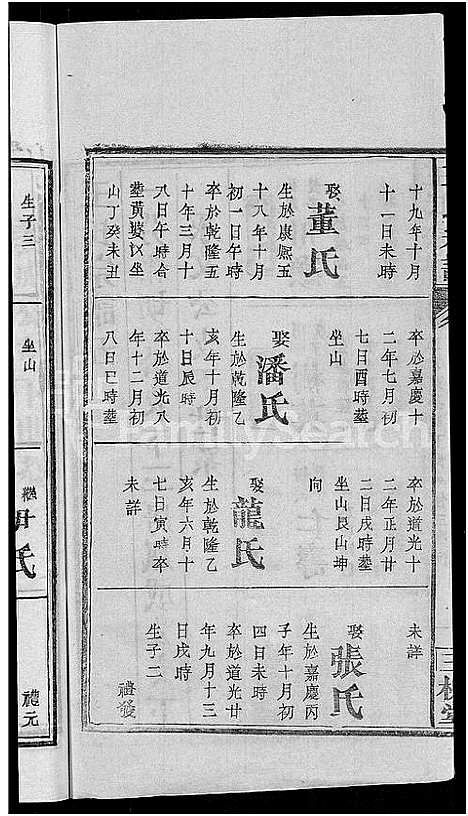 十九年十月
十一日未時
娶董氏
生於康熙五
十八年十月
初一日午時
卒於乾隆五
十年三月十
八日午時合
塟黃婆汊坐
山丁癸未丑
卒於嘉慶十
二年七月初
七日酉時塟
坐山
娶潘氏
生於乾隆乙
亥年十月初
十日辰時
卒於道光八
年十二月初
八日巳時塟
卒於道光十
二年正月廿
二日戌時塟
坐山艮山坤
向
娶龍氏
生於乾隆乙
亥年六月十
七日寅時卒
未詳
未詳
娶張氏
生於嘉慶丙
子年十月初
四日未時
卒於道光廿
年九月十三
日戌時
生子二
禮發
三槐堂
生子三
坐山
氏
禮元
FamilySearch